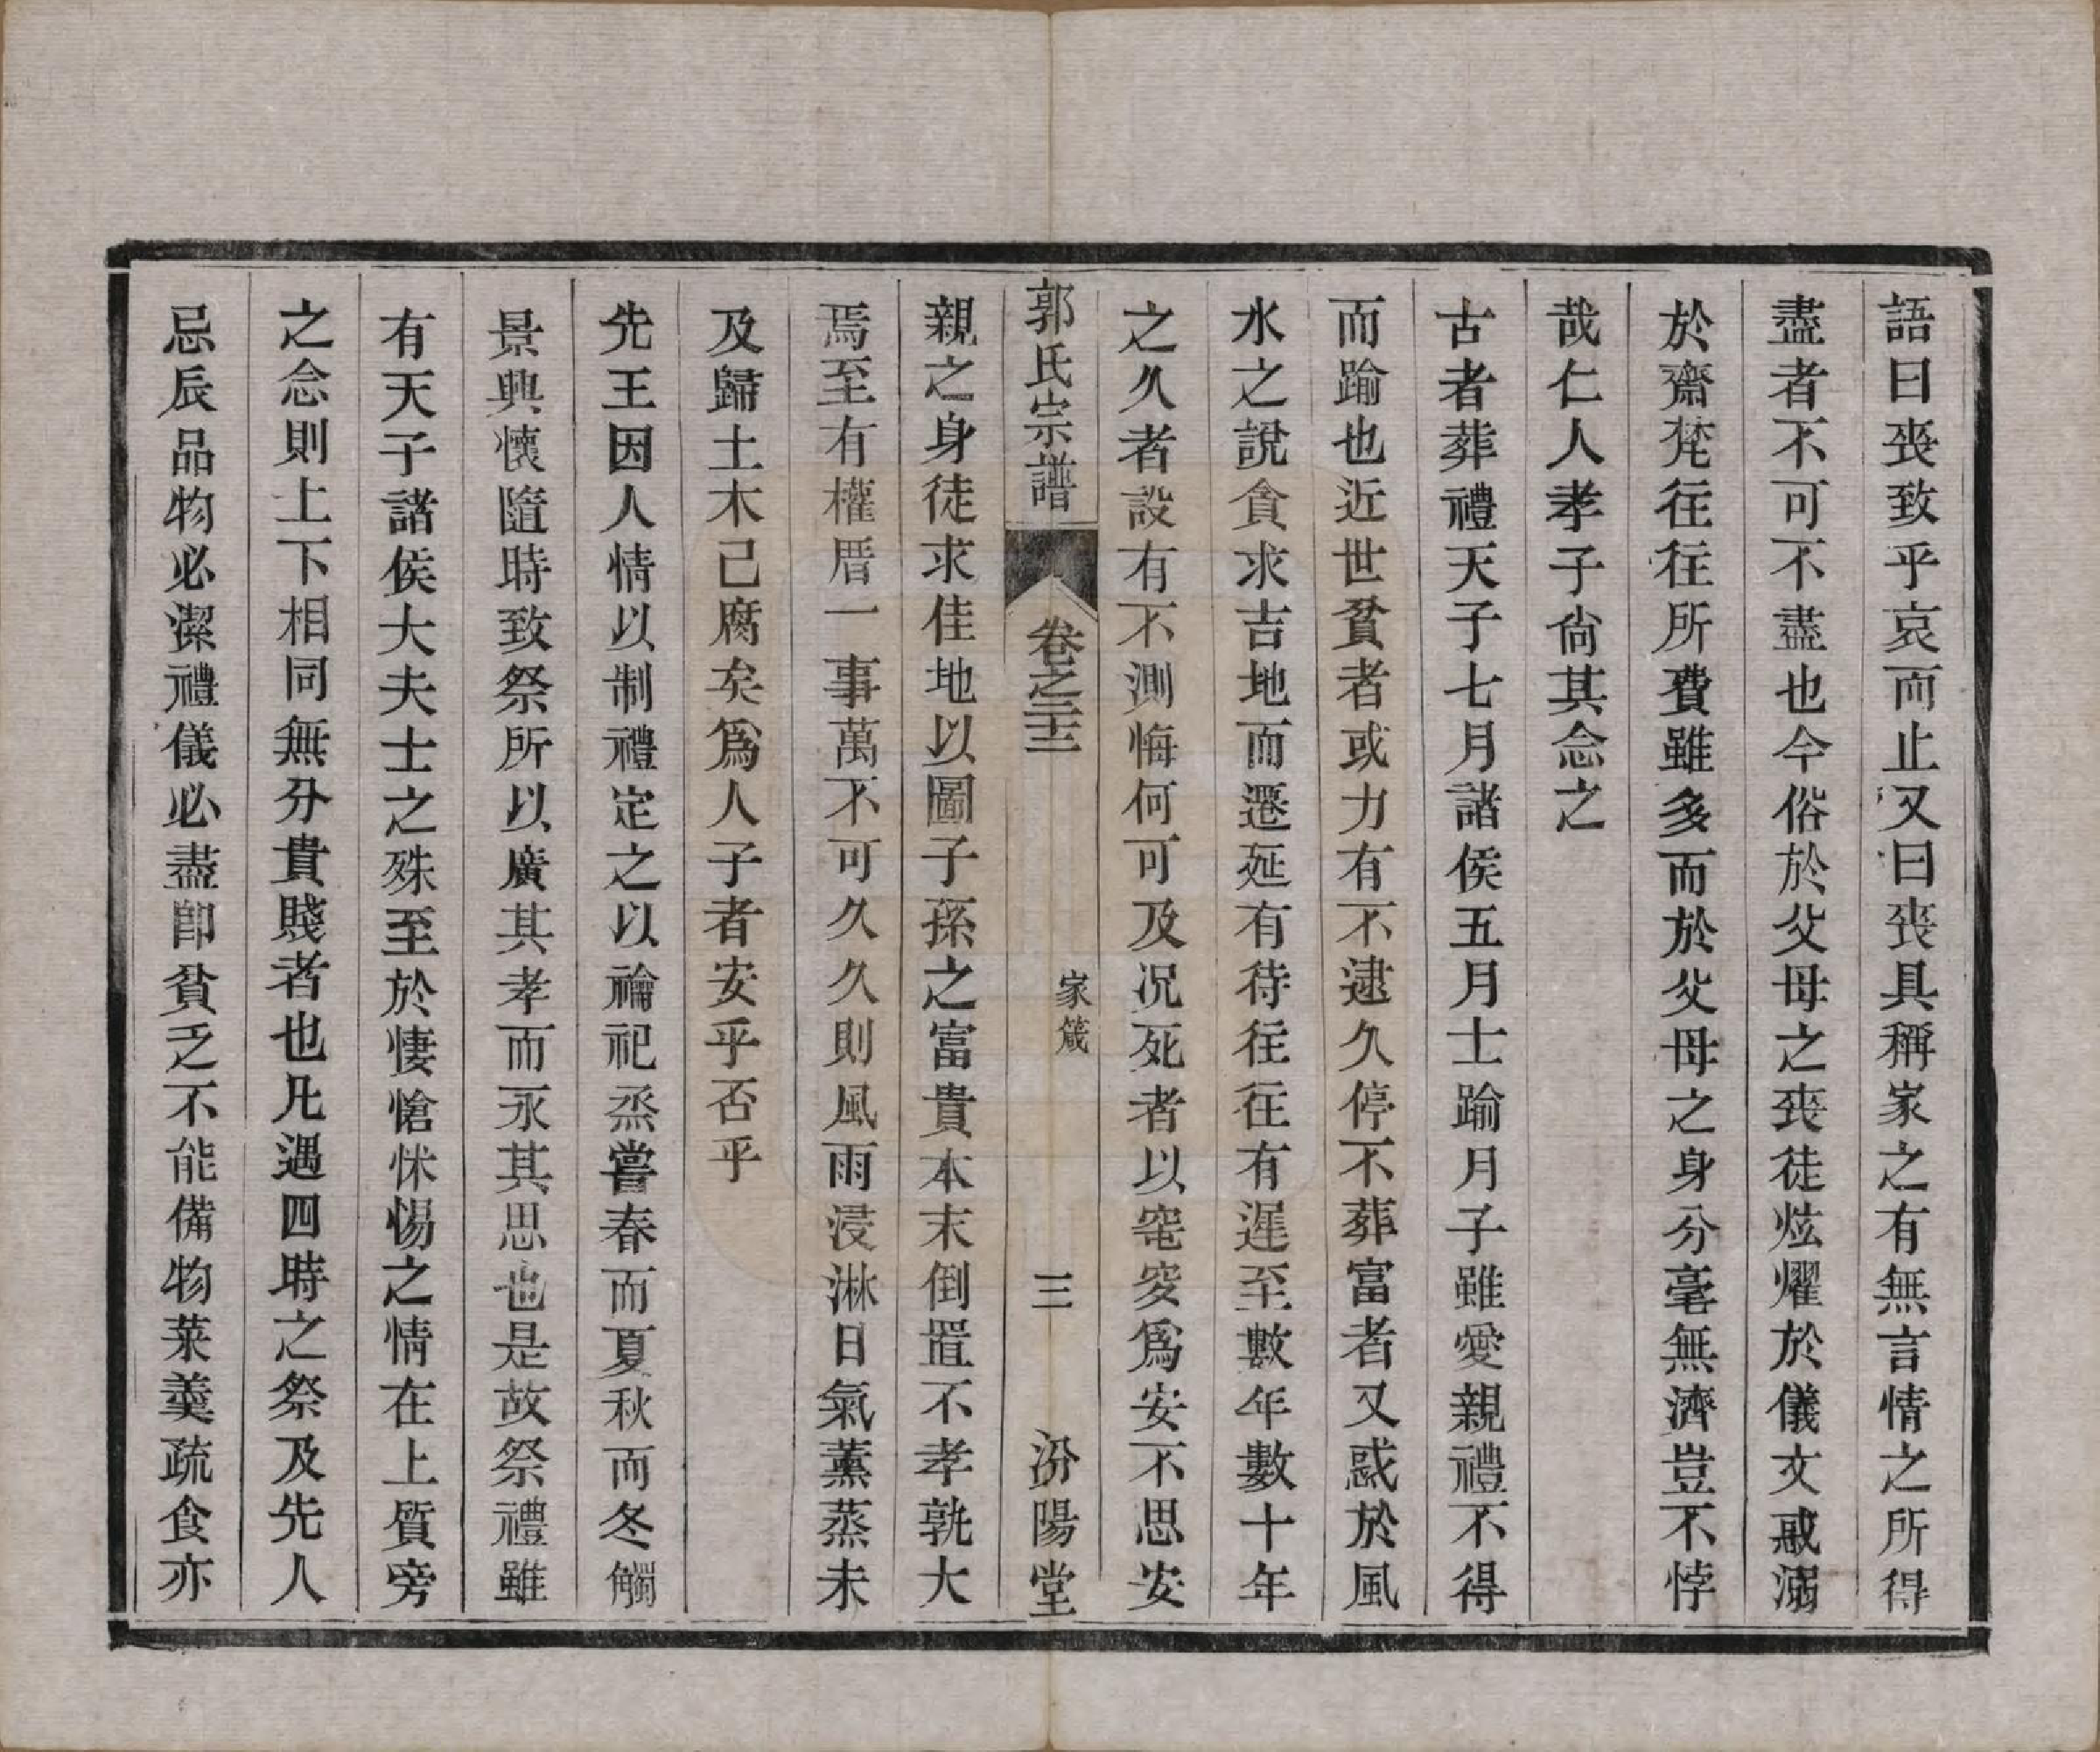 語曰喪致乎哀而止又曰喪具稱家之有無言情之所得
盡者不可不盡也今俗於父母之喪徒炫燿於儀文惑溺
於齋梵往往所費雖多而於父母之身分毫無濟豈不悖
哉仁人孝子尙其念之
古者葬禮天子七月諸侯五月士踰月子雖愛親禮不得
而踰也近世貧者或力有不逮久停不葬富者又惑於風
水之說貪求吉地而遷延有待往往有遲至數年數十年
之久者設有不測悔何可及况死者以窀穸爲安不思安
郭氏宗譜
卷之二十三
家箴
三
汾陽堂
親之身徒求佳地以圖子孫之富貴本末倒置不孝孰大
焉至有權厝一事萬不可久久則風雨浸淋日氣薰蒸未
及歸土木已腐矣爲人子者安乎否乎
先王因人情以制禮定之以禴祀烝嘗春而夏秋而冬觸
景興懷隨時致祭所以廣其孝而永其思也是故祭禮雖
有天子諸侯大夫士之殊至於悽愴怵惕之情在上質旁
之念則上下相同無分貴賤者也凡遇四時之祭及先人
忌辰品物必潔禮儀必盡卽貧乏不能備物菜羹疏食亦